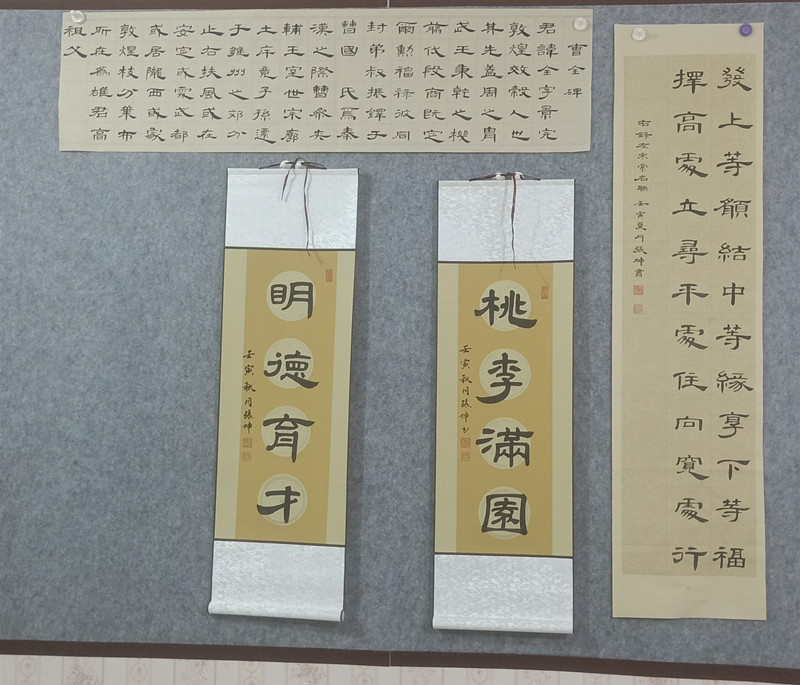 發上等願結中等緣享下等福
擇高處立尋平處住向寬處行
右錄左宗棠名聯 壬寅夏月張坤書
曹全碑
君諱全字景完
敦煌效穀人也
其先蓋周之胄
武王秉乾之機
翦伐殷商既定
爾勳福祿攸同
封弟叔振鐸于
曹國 氏焉秦
漢之際曹參夾
輔王室世宗廓
土斥竟子孫遷
于雍州之郊分
止右扶風或在
安定或處武都
或居隴西或家
敦煌枝分葉布
所在為雄君高
祖父
桃李滿園
壬寅秋月張坤书
明德育才
壬寅秋月張坤